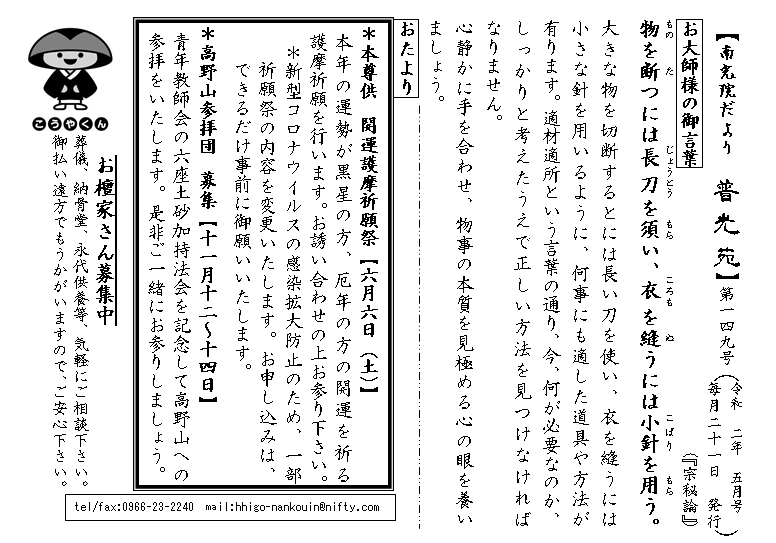 【南光院だより 普光苑】第一四九号（令和 二年 五月号 毎月二十一日 発行）
お大師様の御言葉
物を断つには長刀を須い、衣を縫うには小針を用う。『宗秘論』
もの た じょうとう もち ころも ぬ こばり もち
大きな物を切断するとには長い刀を使い、衣を縫うには
小さな針を用いるように、何事にも適した道具や方法が
有ります。適材適所という言葉の通り、今、何が必要なのか、
しっかりと考えたうえで正しい方法を見つけなければ
なりません。
心静かに手を合わせ、物事の本質を見極める心の眼を養い
ましょう。
おたより
＊本尊供 開運護摩祈願祭【六月六日（土）】
本年の運勢が黒星の方、厄年の方の開運を祈る
護摩祈願を行います。お誘い合わせの上お参り下さい。
＊新型コロナウイルスの感染拡大防止のため、一部
祈願祭の内容を変更いたします。お申し込みは、
できるだけ事前に御願いいたします。
＊高野山参拝団 募集【十一月十二～十四日】
青年教師会の六座土砂加持法会を記念して高野山への
参拝をいたします。是非ご一緒にお参りしましょう。
お檀家さん募集中
葬儀、納骨堂、永代供養等、気軽にご相談下さい。
御払い遠方でもうかがいますので、ご安心下さい。
こうやくん
tel/fax:0966-23-2240 mail:hhigo-nankouin@nifty.com